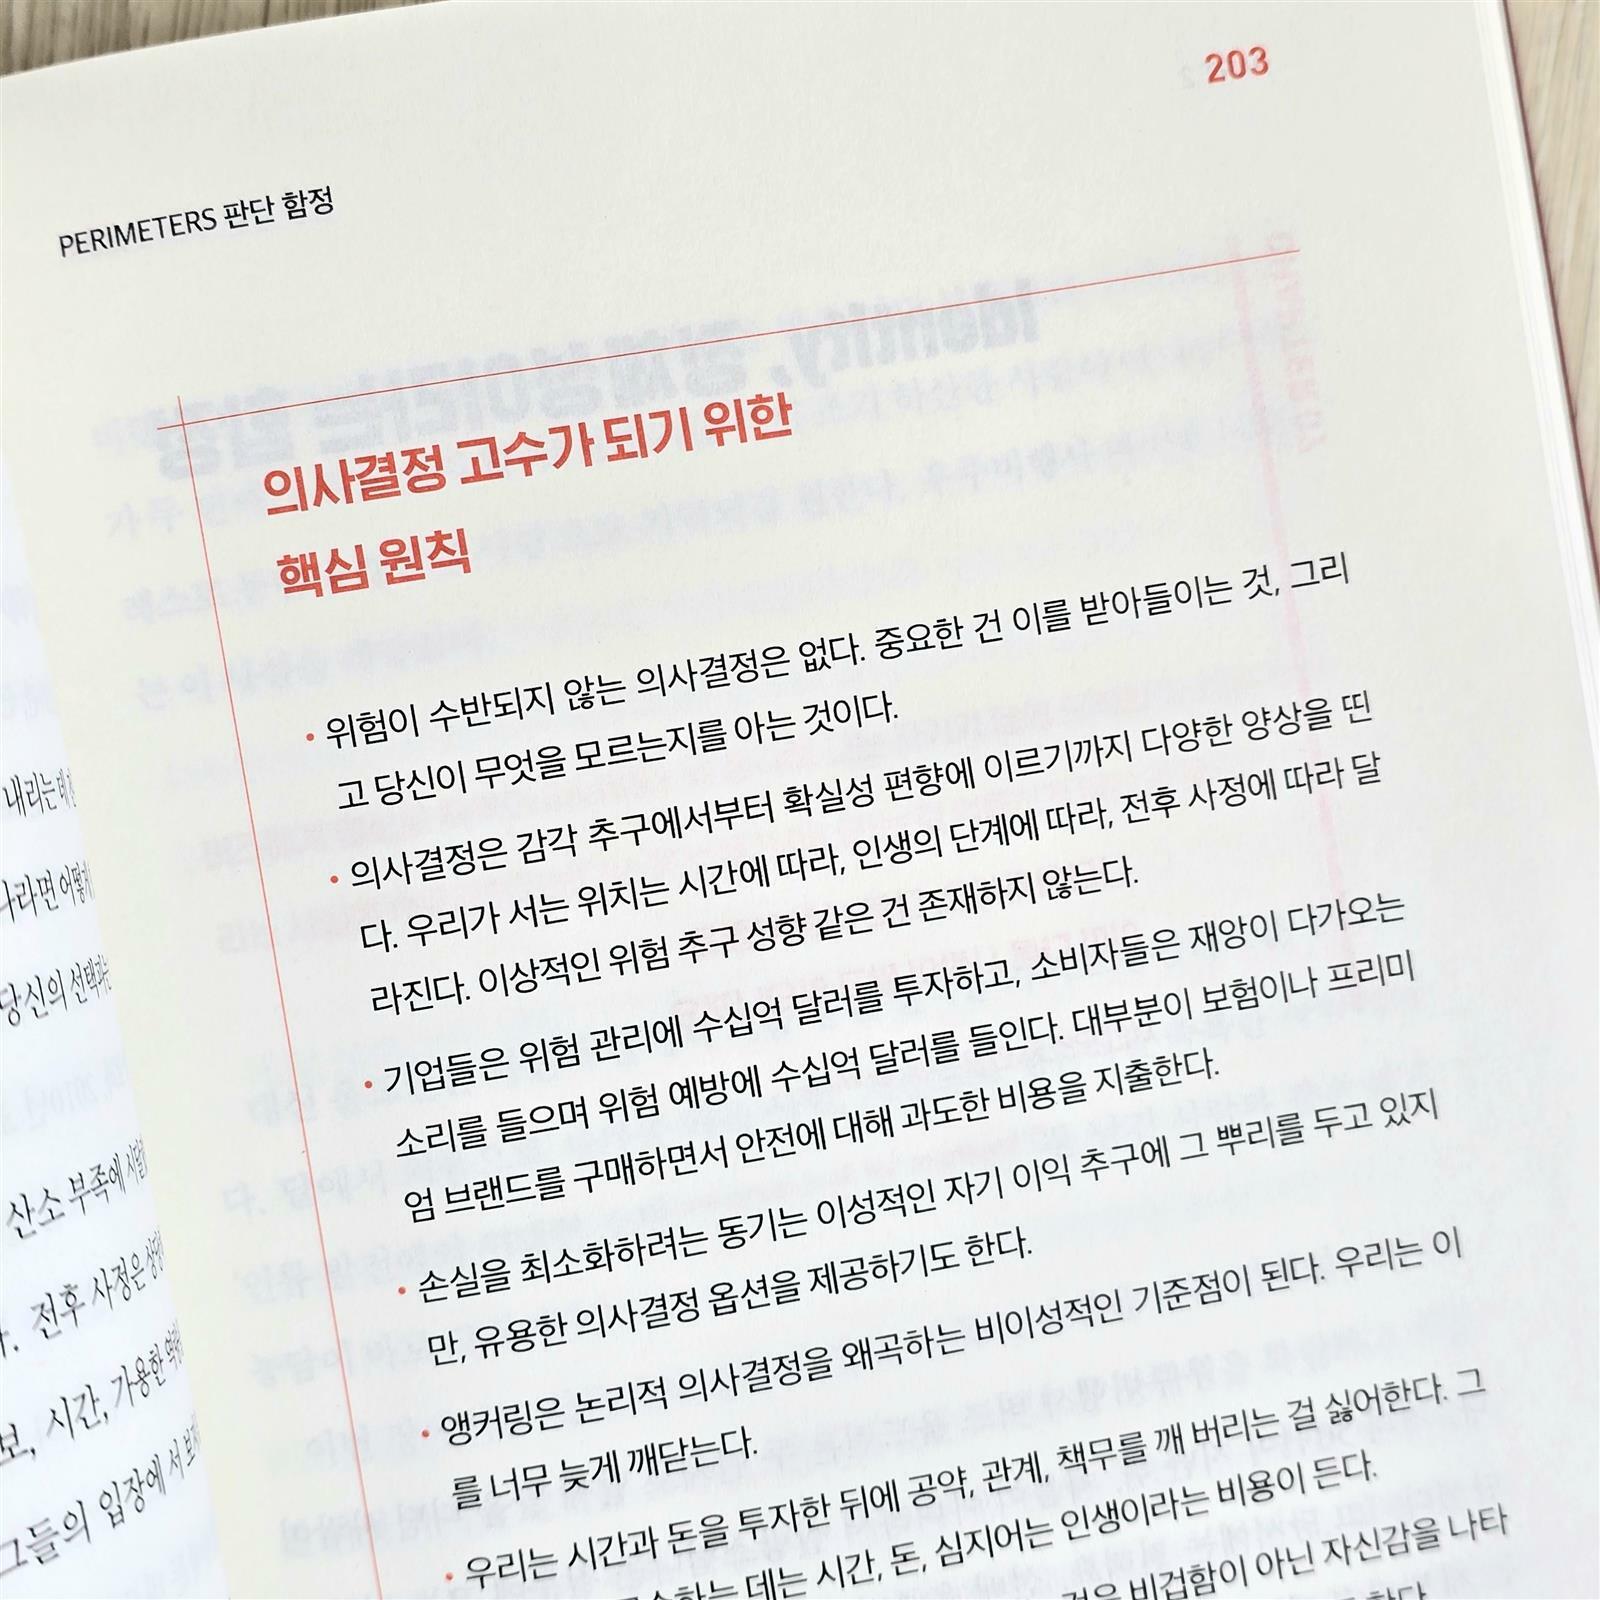 203
PERIMETERS 판단 함정
의사결정 고수가 되기 위한
핵심 원칙
• 위험이 수반되지 않는 의사결정은 없다. 중요한 건 이를 받아들이는 것, 그리
고 당신이 무엇을 모르는지를 아는 것이다.
• 의사결정은 감각 추구에서부터 확실성 편향에 이르기까지 다양한 양상을 띤
다. 우리가 서는 위치는 시간에 따라, 인생의 단계에 따라, 전후 사정에 따라 달
라진다. 이상적인 위험 추구 성향 같은 건 존재하지 않는다.
• 기업들은 위험 관리에 수십억 달러를 투자하고, 소비자들은 재앙이 다가오는
소리를 들으며 위험 예방에 수십억 달러를 들인다. 대부분이 보험이나 프리미
엄 브랜드를 구매하면서 안전에 대해 과도한 비용을 지출한다.
• 손실을 최소화하려는 동기는 이성적인 자기 이익 추구에 그 뿌리를 두고 있지
만, 유용한 의사결정 옵션을 제공하기도 한다.
• 앵커링은 논리적 의사결정을 왜곡하는 비이성적인 기준점이 된다. 우리는 이
를 너무 늦게 깨닫는다.
• 우리는 시간과 돈을 투자한 뒤에 공약, 관계, 책무를 깨 버리는 걸 싫어한다. 그
데는 시간, 돈, 심지어는 인생이라는 비용이 든다.
비겁함이 아닌 자신감을 나타
내리는 데
나라면
당신의
산소 부족에
전후 사정은
시간, 가용한
그들의 입장에 서